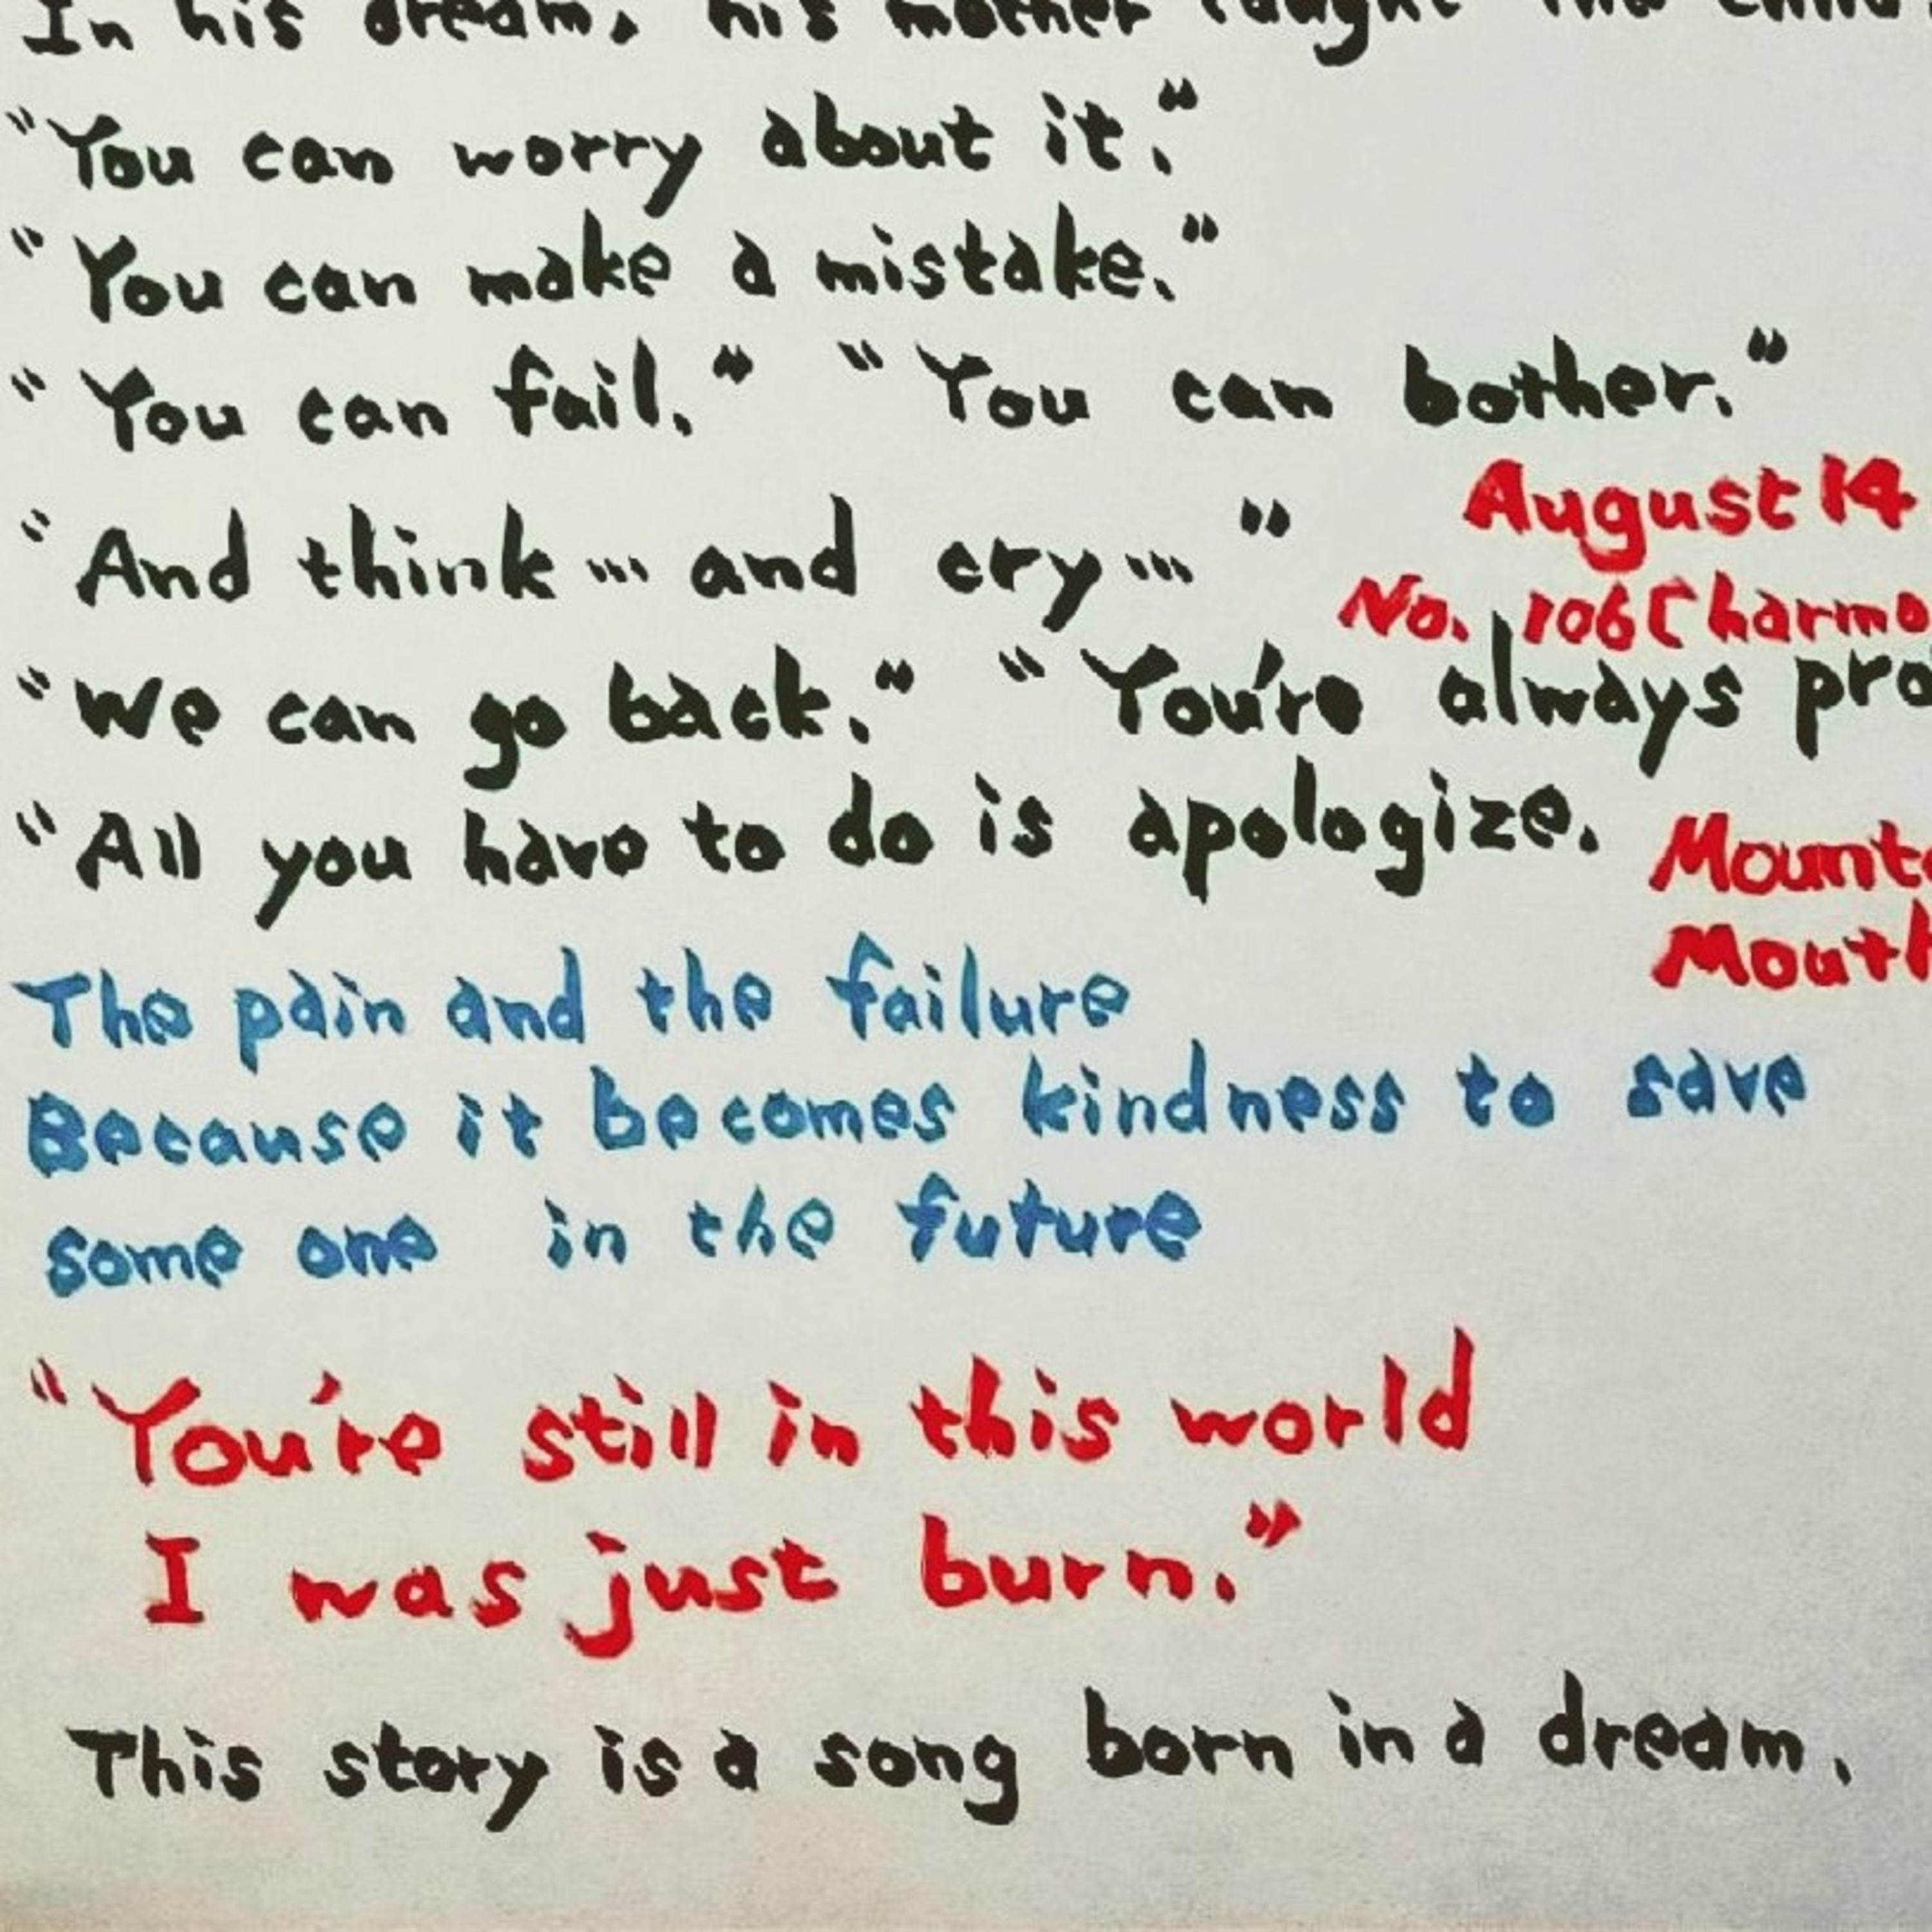 In his dream, his mother taught the child.
"You can worry about it."
"You can make a mistake."
"You can fail." "You can bother."
August 14
"And think... and cry..."
No. 106 [harmo
"We can go back." "You're always pro
"All you have to do is apologize.
Mounta
Mouth
The pain and the failure
Because it becomes kindness to save
some one in the future
"You're still in this world
I was just burn."
This story is a song born in a dream.